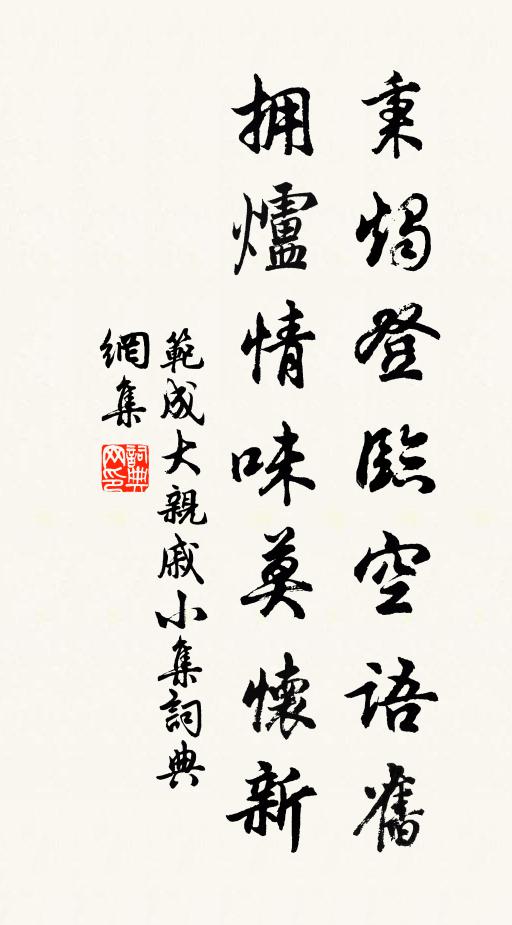 秉燭登臨空語舊
拥爐情味莫懷新
範成大親戚小集詞典
網集
詞典
网印